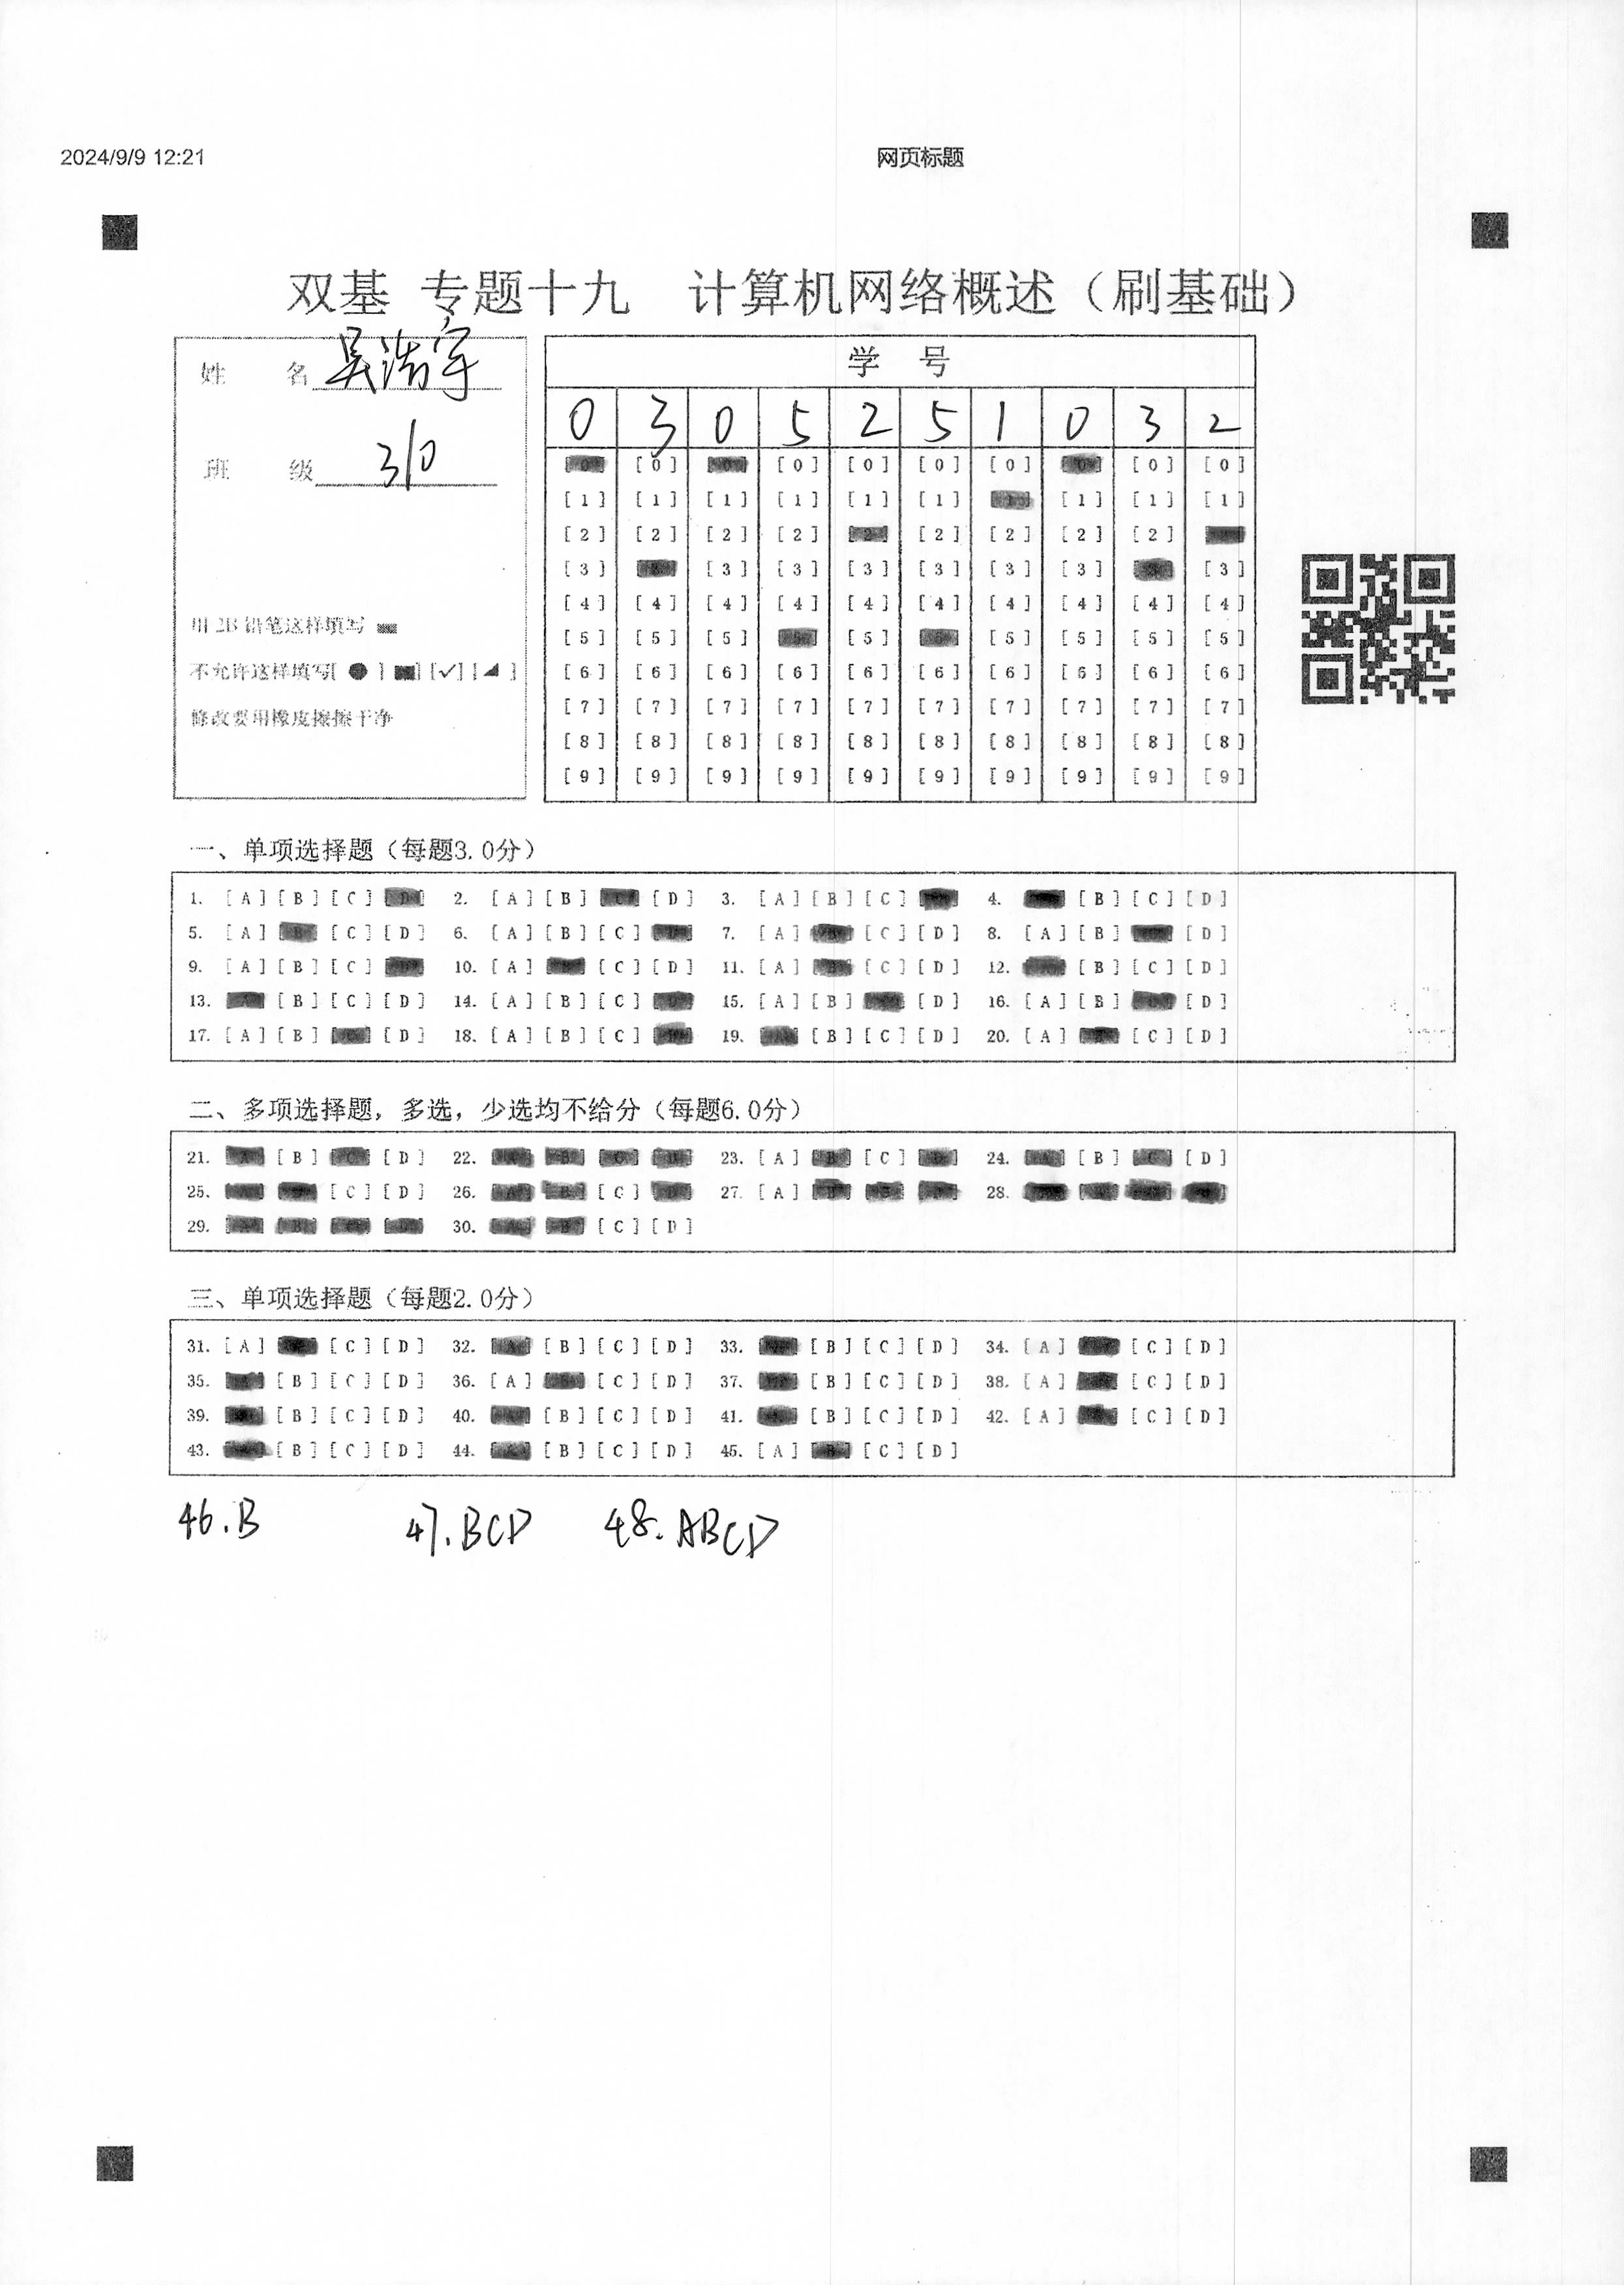 2024/9/9 12:21 网页标题
双基 专题十九 计算机网络概述（刷基础）
姓 名 吴浩宇
班 级 310
用 2B 铅笔这样填写
不允许这样填写[ ● ] [■] [✓] [◢ ]
修改要用橡皮擦擦干净
学 号
0 3 0 5 2 5 1 0 3 2
[0] [0] [0] [0] [0] [0] [0] [0] [0] [0]
[1] [1] [1] [1] [1] [1] [1] [1] [1] [1]
[2] [2] [2] [2] [2] [2] [2] [2] [2]
[3] [3] [3] [3] [3] [3] [3] [3] [3] [3]
[4] [4] [4] [4] [4] [4] [4] [4] [4] [4]
[5] [5] [5] [5] [5] [5] [5] [5] [5] [5]
[6] [6] [6] [6] [6] [6] [6] [6] [6] [6]
[7] [7] [7] [7] [7] [7] [7] [7] [7] [7]
[8] [8] [8] [8] [8] [8] [8] [8] [8] [8]
[9] [9] [9] [9] [9] [9] [9] [9] [9] [9]
一、单项选择题（每题3.0分）
1. [A] [B] [C] [D] 2. [A] [B] [C] [D] 3. [A] [B] [C] 4. [B] [C] [D]
5. [A] [B] [C] [D] 6. [A] [B] [C] 7. [A] [C] [D] 8. [A] [B] [D]
9. [A] [B] [C] 10. [A] [C] [D] 11. [A] [C] [D] 12. [B] [C] [D]
13. [B] [C] [D] 14. [A] [B] [C] 15. [A] [B] [D] 16. [A] [B] [D]
17. [A] [B] [D] 18. [A] [B] [C] 19. [B] [C] [D] 20. [A] [C] [D]
二、多项选择题，多选，少选均不给分（每题6.0分）
21. [B] [D] 22. 23. [A] [C] 24. [B] [D]
25. [C] [D] 26. [C] 27. [A] 28.
29. 30. [C] [D]
三、单项选择题（每题2.0分）
31. [A] [C] [D] 32. [B] [C] [D] 33. [B] [C] [D] 34. [A] [C] [D]
35. [B] [C] [D] 36. [A] [C] [D] 37. [B] [C] [D] 38. [A] [C] [D]
39. [B] [C] [D] 40. [B] [C] [D] 41. [B] [C] [D] 42. [A] [C] [D]
43. [B] [C] [D] 44. [B] [C] [D] 45. [A] [B] [C] [D]
46.B 47.BCD 48.ABCD